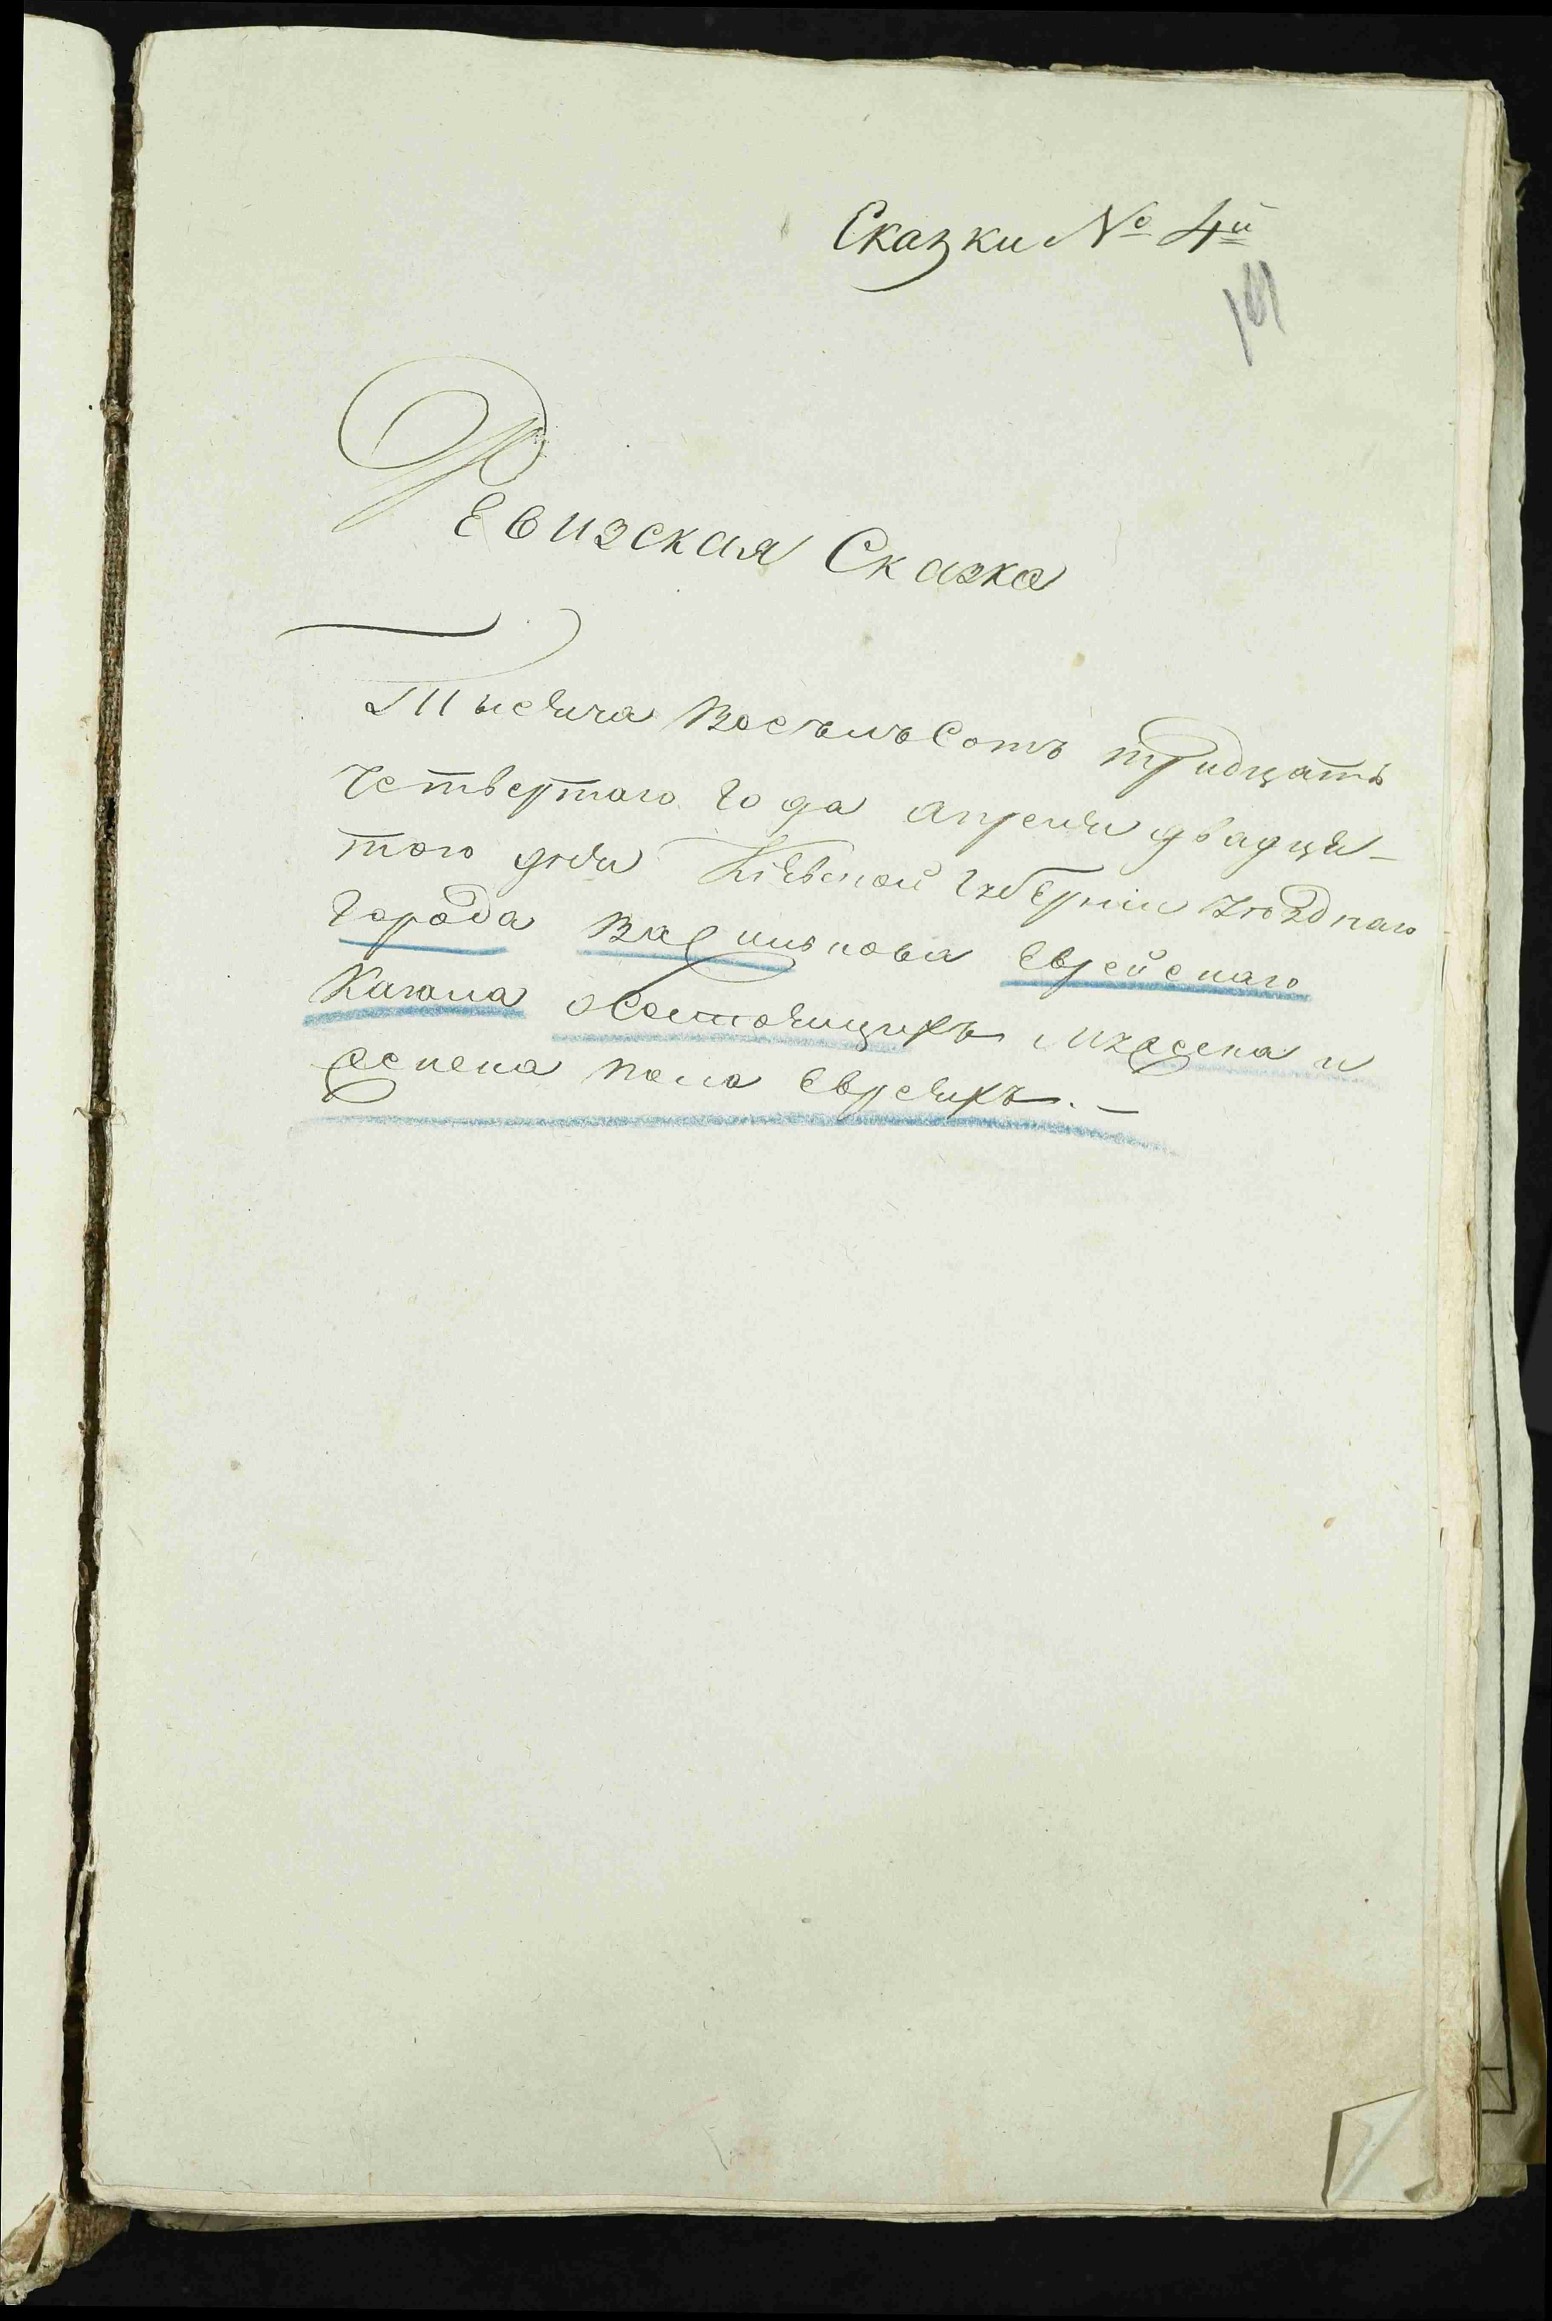 Сказки № 4й
Ревизская Сказка
Тысяча Восемьсотъ тридцать
четвертаго года апреля двадца-
того дня Кіевской Губерніи уѣзднаго
Города Василькова Еврейскаго
Кагала о Состоящихъ мужеска и
женска пола Евреяхъ. —